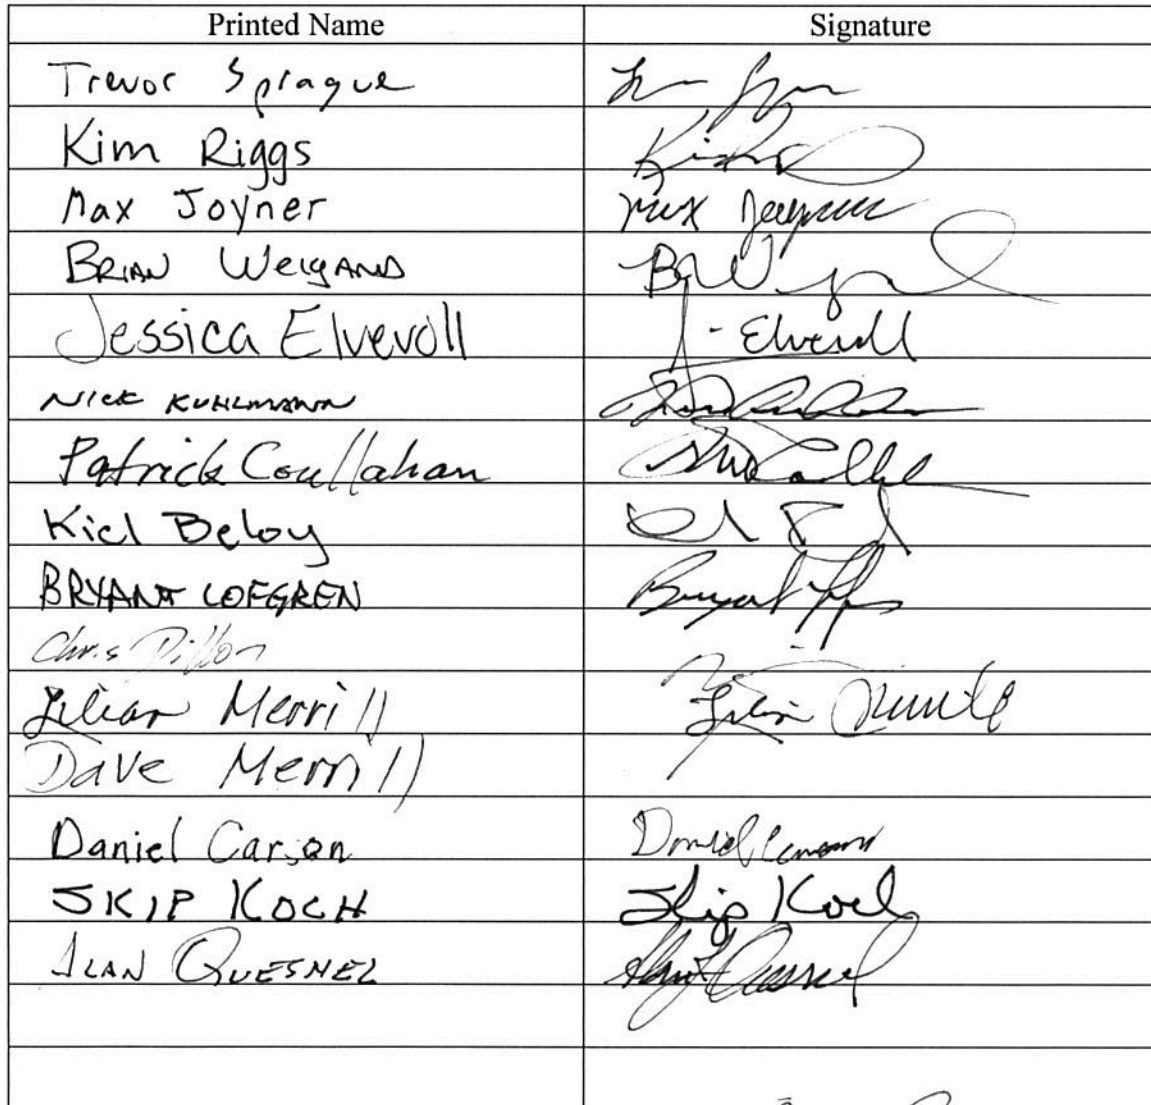 Printed Name Signature
Trevor Sprague
Kim Riggs
Max Joyner Max Joyner
BRIAN WEIGAND
Jessica Elvevoll J - Elvevoll
NICK KUHLMANN
Patrick Coullahan
Kiel Beloy
BRYANT LOFGREN Bryant
Chris Dillon
Lilian Merrill
Dave Merrill
Daniel Carson Daniel
SKIP KOCH Skip Koch
ALAN QUESNEL